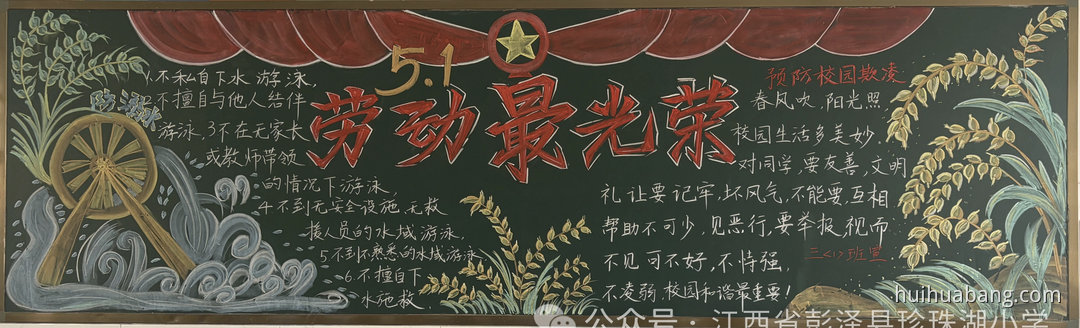 5.1
劳动最光荣
防溺水
1.不私自下水游泳,
2不擅自与他人结伴
游泳.3不在无家长
或教师带领
的情况下游泳,
4不到无安全设施,无救
援人员的水域游泳
5不到不熟悉的水域游泳
6不擅自下
水施救
预防校园欺凌
春风吹,阳光照
校园生活多美妙.
对同学,要友善,文明
礼让要记牢,坏风气,不能要互相
帮助不可少,见恶行,要举报,视而
不见可不好,不恃强,
不凌弱,校园和谐最重要!
三<1>班宣
huihuabang.com
公众号·江西省彭泽县珍珠湖小学